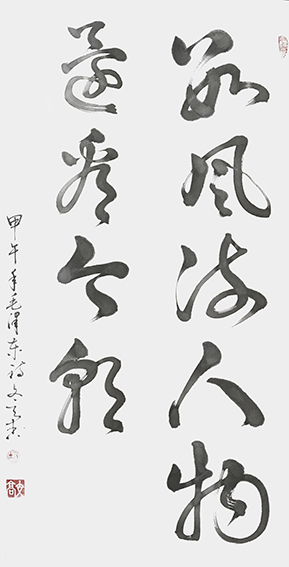 数风流人物
还看今朝
甲午年毛泽东诗文